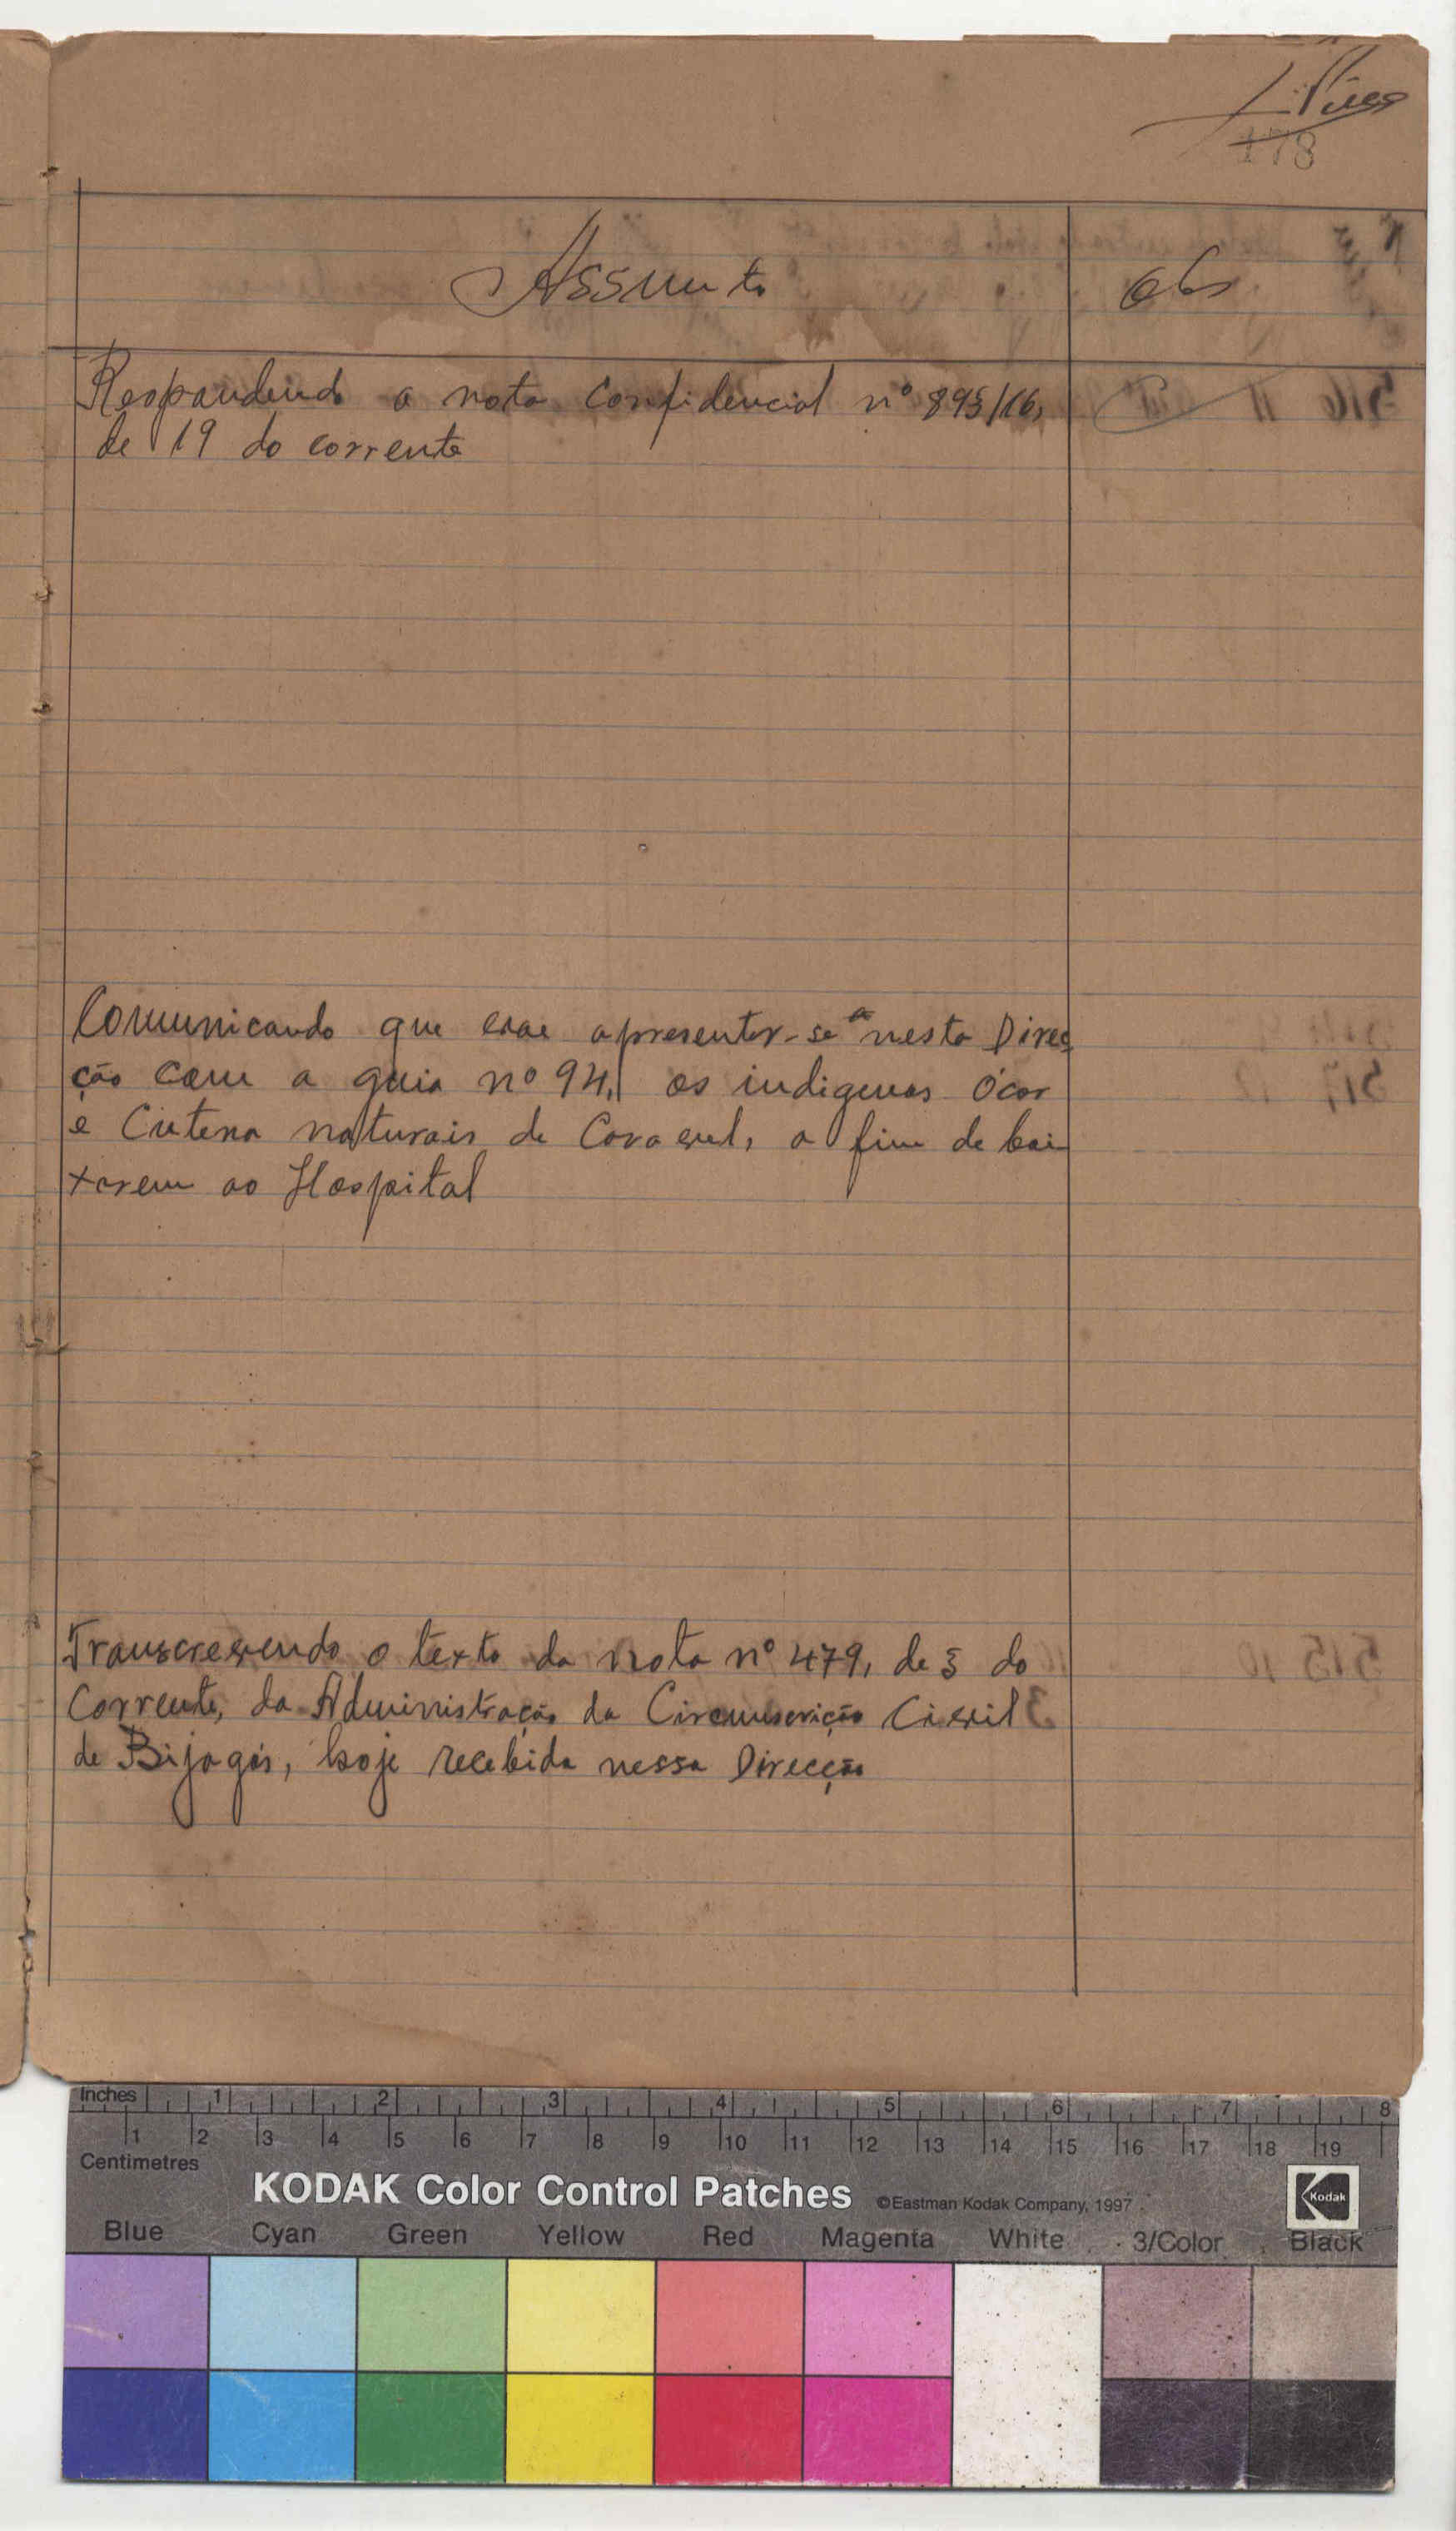 178
Assunto
Obs
Respondendo a nota confidencial nº 895/16,
de 19 do corrente
Comunicando que apresentar-se nesta Direc
ção com a guia nº 94, os indigenas Ócor
e Cutena naturais de Caravel, a fim de bai
xarem ao Hospital
Transcrevendo o texto da nota nº 479, de 5 do
Corrente, da Administração da Circunscrição Civil
de Bijagós, hoje recebida nessa Direcção
Inches 1 2 3 4 5 6 7 8
1 2 3 4 5 6 7 8 9 10 11 12 13 14 15 16 17 18 19
Centimetres
KODAK Color Control Patches ©Eastman Kodak Company, 1997
Kodak
Blue Cyan Green Yellow Red Magenta White 3/Color Black